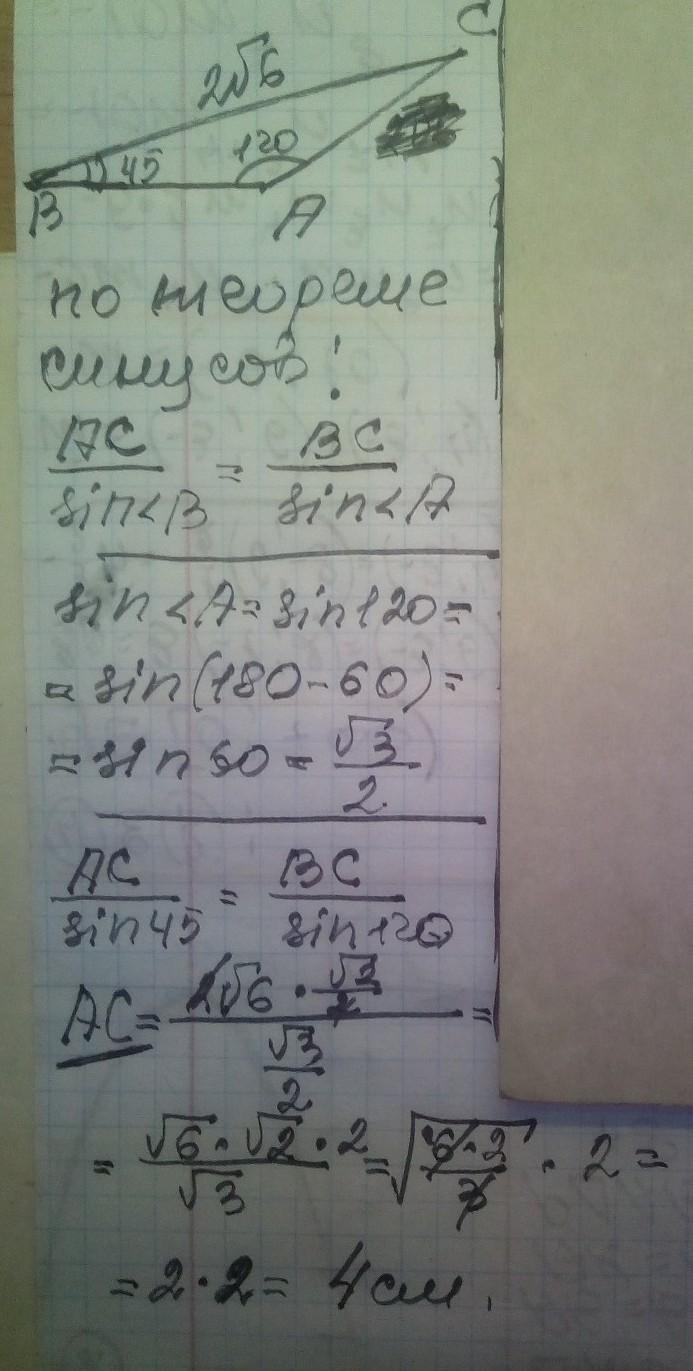 C
2√6
120
45
B
A
по теореме
синусов:
AC/sin<B = BC/sin<A
sin<A=sin120=
=sin(180-60)=
=sin60=√3/2
AC/sin45 = BC/sin120
AC=(2√6·√3/2)/(√3/2)=
=(√6·√2·2)/√3=√(6·2/3)·2=
=2·2=4см.